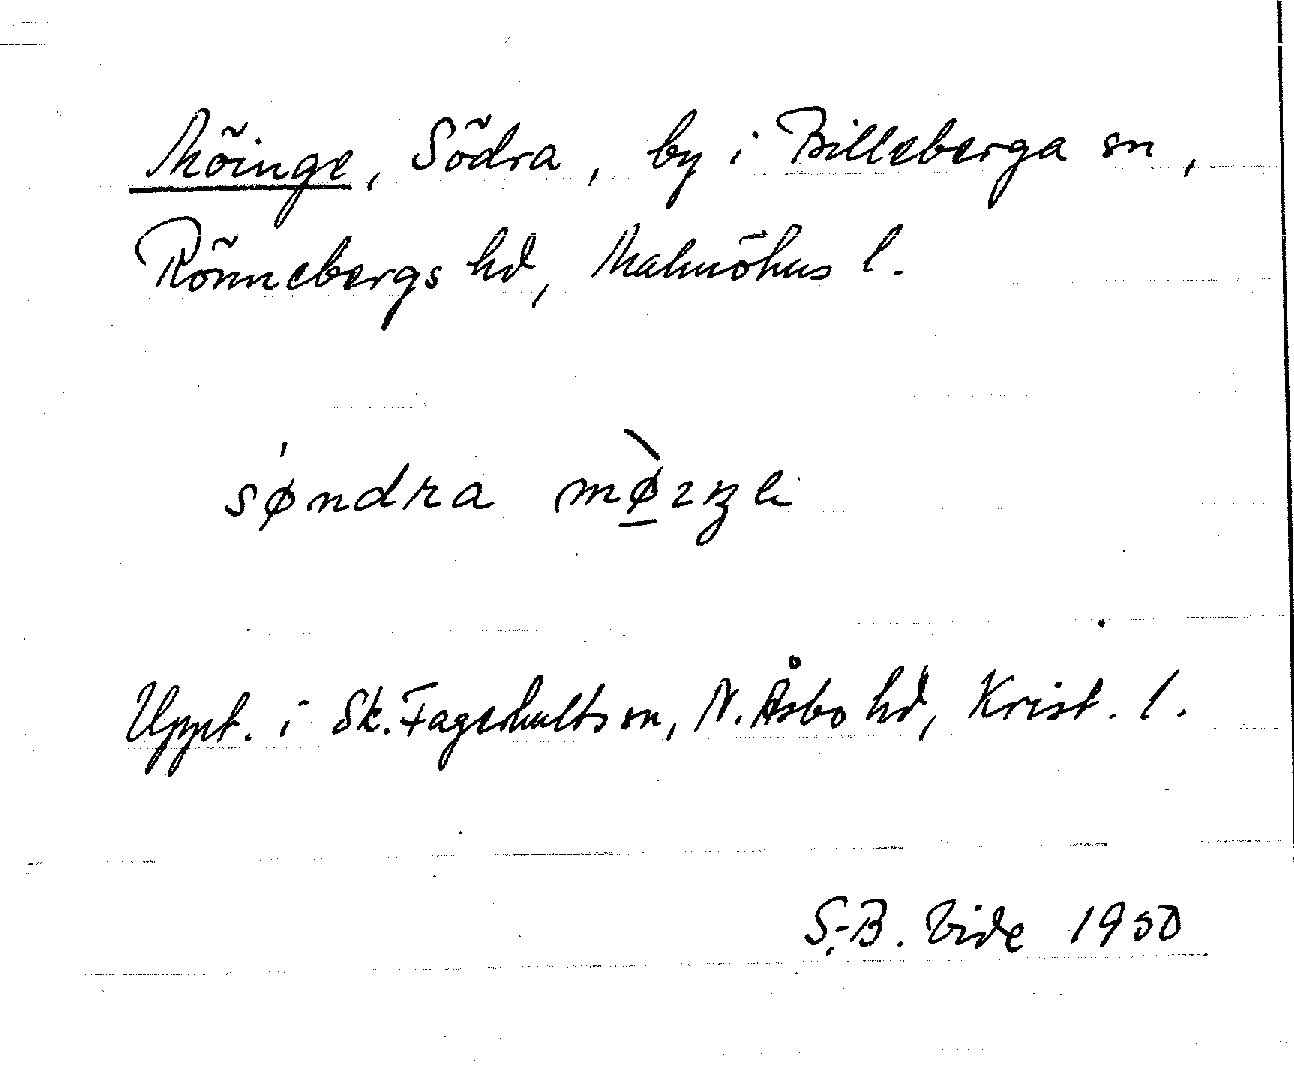 Möinge, Södra, by i Billeberga sn,
Rönnebergs hd, Malmöhus l.
söndra
Uppt. i Sk. Fagerhults sn, N. Åsbo hd, Krist. l.
S.-B. Vide 1950